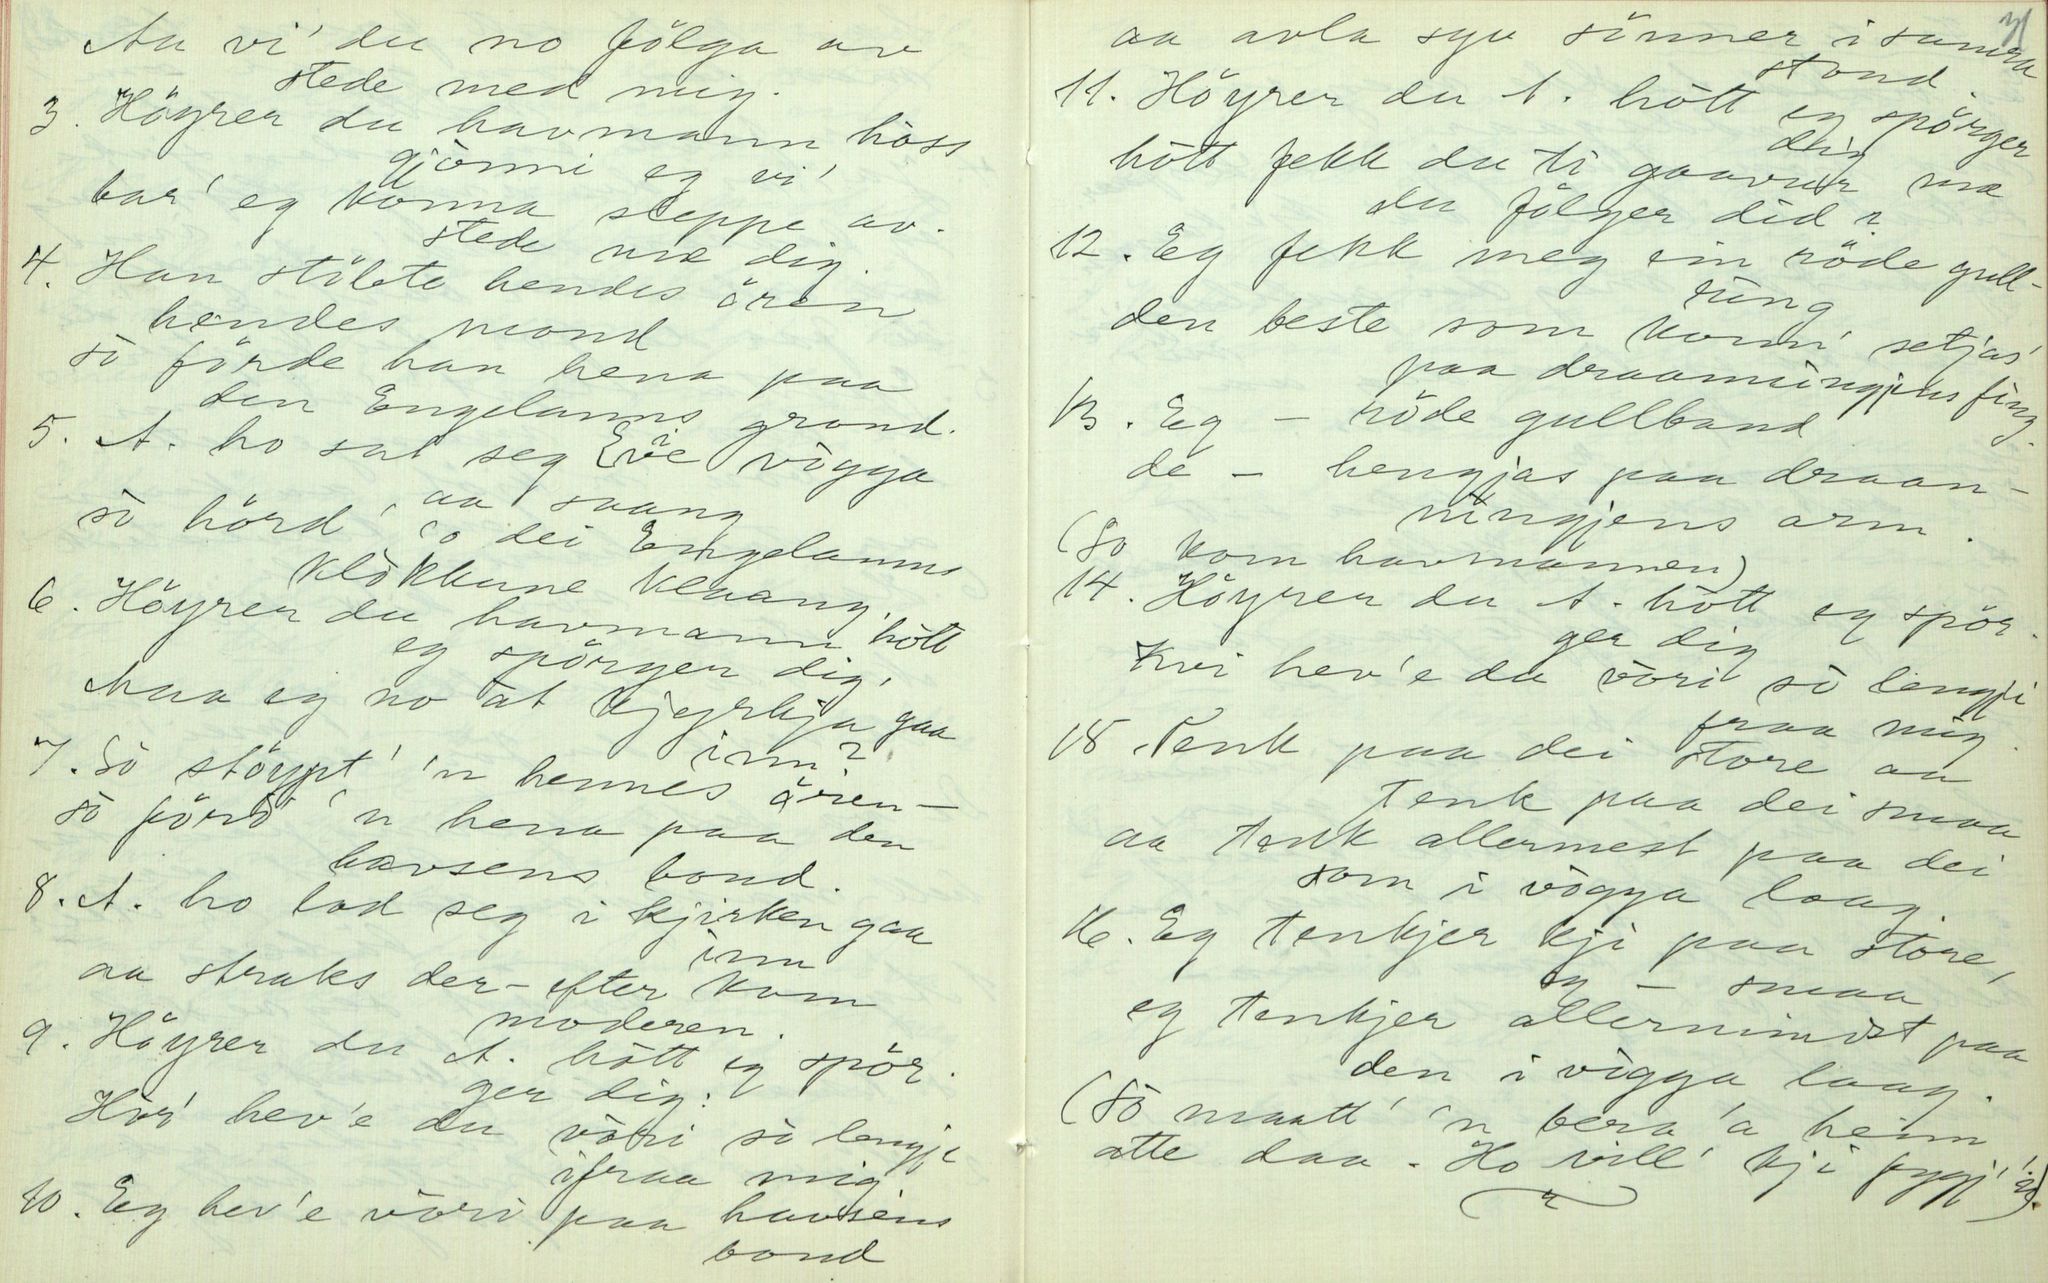 Aa vi' du no fölga av
stede med mig.
3. Höyrer du havmann höss
gjönni eg vi'
bar' eg könna sleppe av.
stede me dig.
4. Han stölete hendes ören
hendes mond
sò förde han hena paa
den Engelanns grond.
5. A. ho sat seg ve vògga
aa saang
sò hörd' 'o dei Engelanns
klòkkune klaang.
6. Höyrer du havmann hòtt
eg spörger dig,
Maa eg no àt kjeyrkja gaa
inn?
7. Sò stöypt' 'n hennes ören –
sò förd' 'n hena paa den
havsens bond.
8. A. ho lod seg i kjirken gaa
inn
aa straks der-efter kom
moderen.
9. Höyrer du A. hòtt eg spör-
ger dig:
Hòr' hev'e du vòri sò lengje
ifraa mig
10. Eg hev'e vòri paa havsens
bond
31
aa avla syv sönner i samma
stond.
11. Höyrer du A. hòtt eg spörger
dig
hòtt fekk du ti gaavur me
du fölger did?
12. Eg fekk meg ein röde gull-
ring
den beste som konn' setjas'
paa draanningjens fing.
13. Eg – röde gullband
de – hengjas paa draan-
ningjens arm.
(So kom havmannen)
14. Höyrer du A. hòtt eg spör-
ger dig
Kvi hev'e du vòri sò lengji
fraa mig.
15. Tenk paa dei store aa
tenk paa dei smaa
aa tenk allermest paa dei
som i vògga laag.
16. Eg tenkjer kji paa store,
eg – smaa
eg tenkjer allerminst paa
den i vògga laag.
(Sò maatt' 'n bera 'a heim
atte daa. Ho vill' kji fygj' 'n).